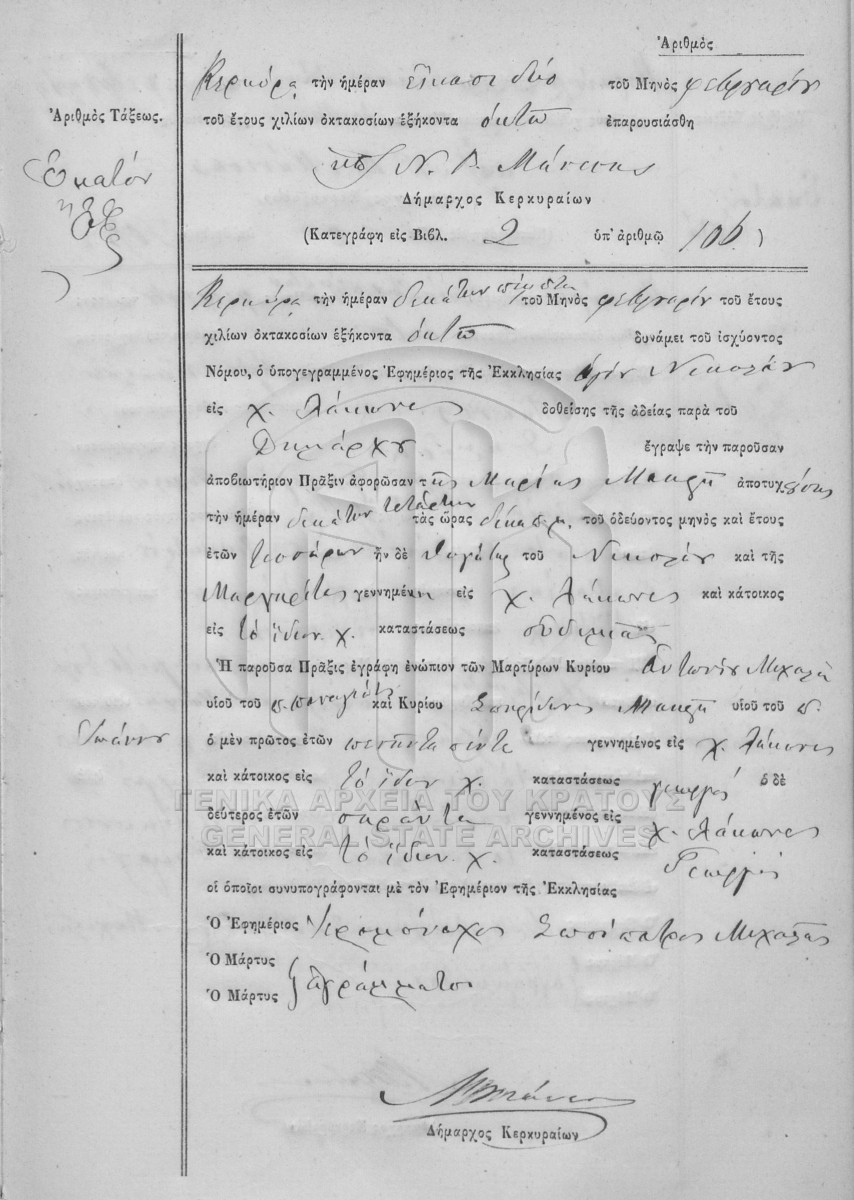 Ἀριθμὸς
Κερκύρᾳ τὴν ἡμέραν εἴκοσι δύο τοῦ Μηνὸς φεβρουαρίου
Ἀριθμὸς Τάξεως.
τοῦ ἔτους χιλίων ὀκτακοσίων ἑξήκοντα ὀκτὼ ἐπαρουσιάσθη
Ἑκατὸν
ἓξ
Ν. Γ. Μάνεσης
Δήμαρχος Κερκυραίων
(Κατεγράφη εἰς Βιβλ. 2 ὑπ' ἀριθμῷ 106)
Κερκύρᾳ τὴν ἡμέραν δεκάτην πέμπτην τοῦ Μηνὸς φεβρουαρίου τοῦ ἔτους
χιλίων ὀκτακοσίων ἑξήκοντα ὀκτὼ δυνάμει τοῦ ἰσχύοντος
Νόμου, ὁ ὑπογεγραμμένος Ἐφημέριος τῆς Ἐκκλησίας ἁγίου Νικολάου
εἰς χ. Λάκωνες δοθείσης τῆς ἀδείας παρὰ τοῦ
Δημάρχου ἔγραψε τὴν παροῦσαν
ἀποβιωτήριον Πρᾶξιν ἀφορῶσαν τῆς Μαρίας Μακρῆ ἀποτυχούσης
τὴν ἡμέραν δεκάτην τετάρτην τὰς ὥρας δέκα π.μ. τοῦ ὁδεύοντος μηνὸς καὶ ἔτους
ἐτῶν τεσσάρων ἦν δὲ θυγάτηρ τοῦ Νικολάου καὶ τῆς
Μαργαρίτας γεννημένη εἰς χ. Λάκωνες καὶ κάτοικος
εἰς τὸ ἴδιον χ. καταστάσεως
Ἡ παροῦσα Πρᾶξις ἐγράφη ἐνώπιον τῶν Μαρτύρων Κυρίου Ἀντωνίου Μιχαλᾶ
υἱοῦ τοῦ π. παναγιώτη καὶ Κυρίου Σπυρίδωνος Μακρῆ υἱοῦ τοῦ π.
Ἰωάννου
ὁ μὲν πρῶτος ἐτῶν πενῆντα πέντε γεννημένος εἰς χ. Λάκωνες
καὶ κάτοικος εἰς τὸ ἴδιον χ. καταστάσεως γεωργός ὁ δὲ
δεύτερος ἐτῶν σαράντα γεννημένος εἰς χ. Λάκωνες
καὶ κάτοικος εἰς τὸ ἴδιον χ. καταστάσεως Γεωργός
οἱ ὁποῖοι συνυπογράφονται μὲ τὸν Ἐφημέριον τῆς Ἐκκλησίας
Ὁ Ἐφημέριος Ἱερομόναχος Σωσίπατρος Μιχαλᾶς
Ὁ Μάρτυς
Ὁ Μάρτυς ἀγράμματοι
Δήμαρχος Κερκυραίων
ΓΕΝΙΚΑ ΑΡΧΕΙΑ ΤΟΥ ΚΡΑΤΟΥΣ
GENERAL STATE ARCHIVES